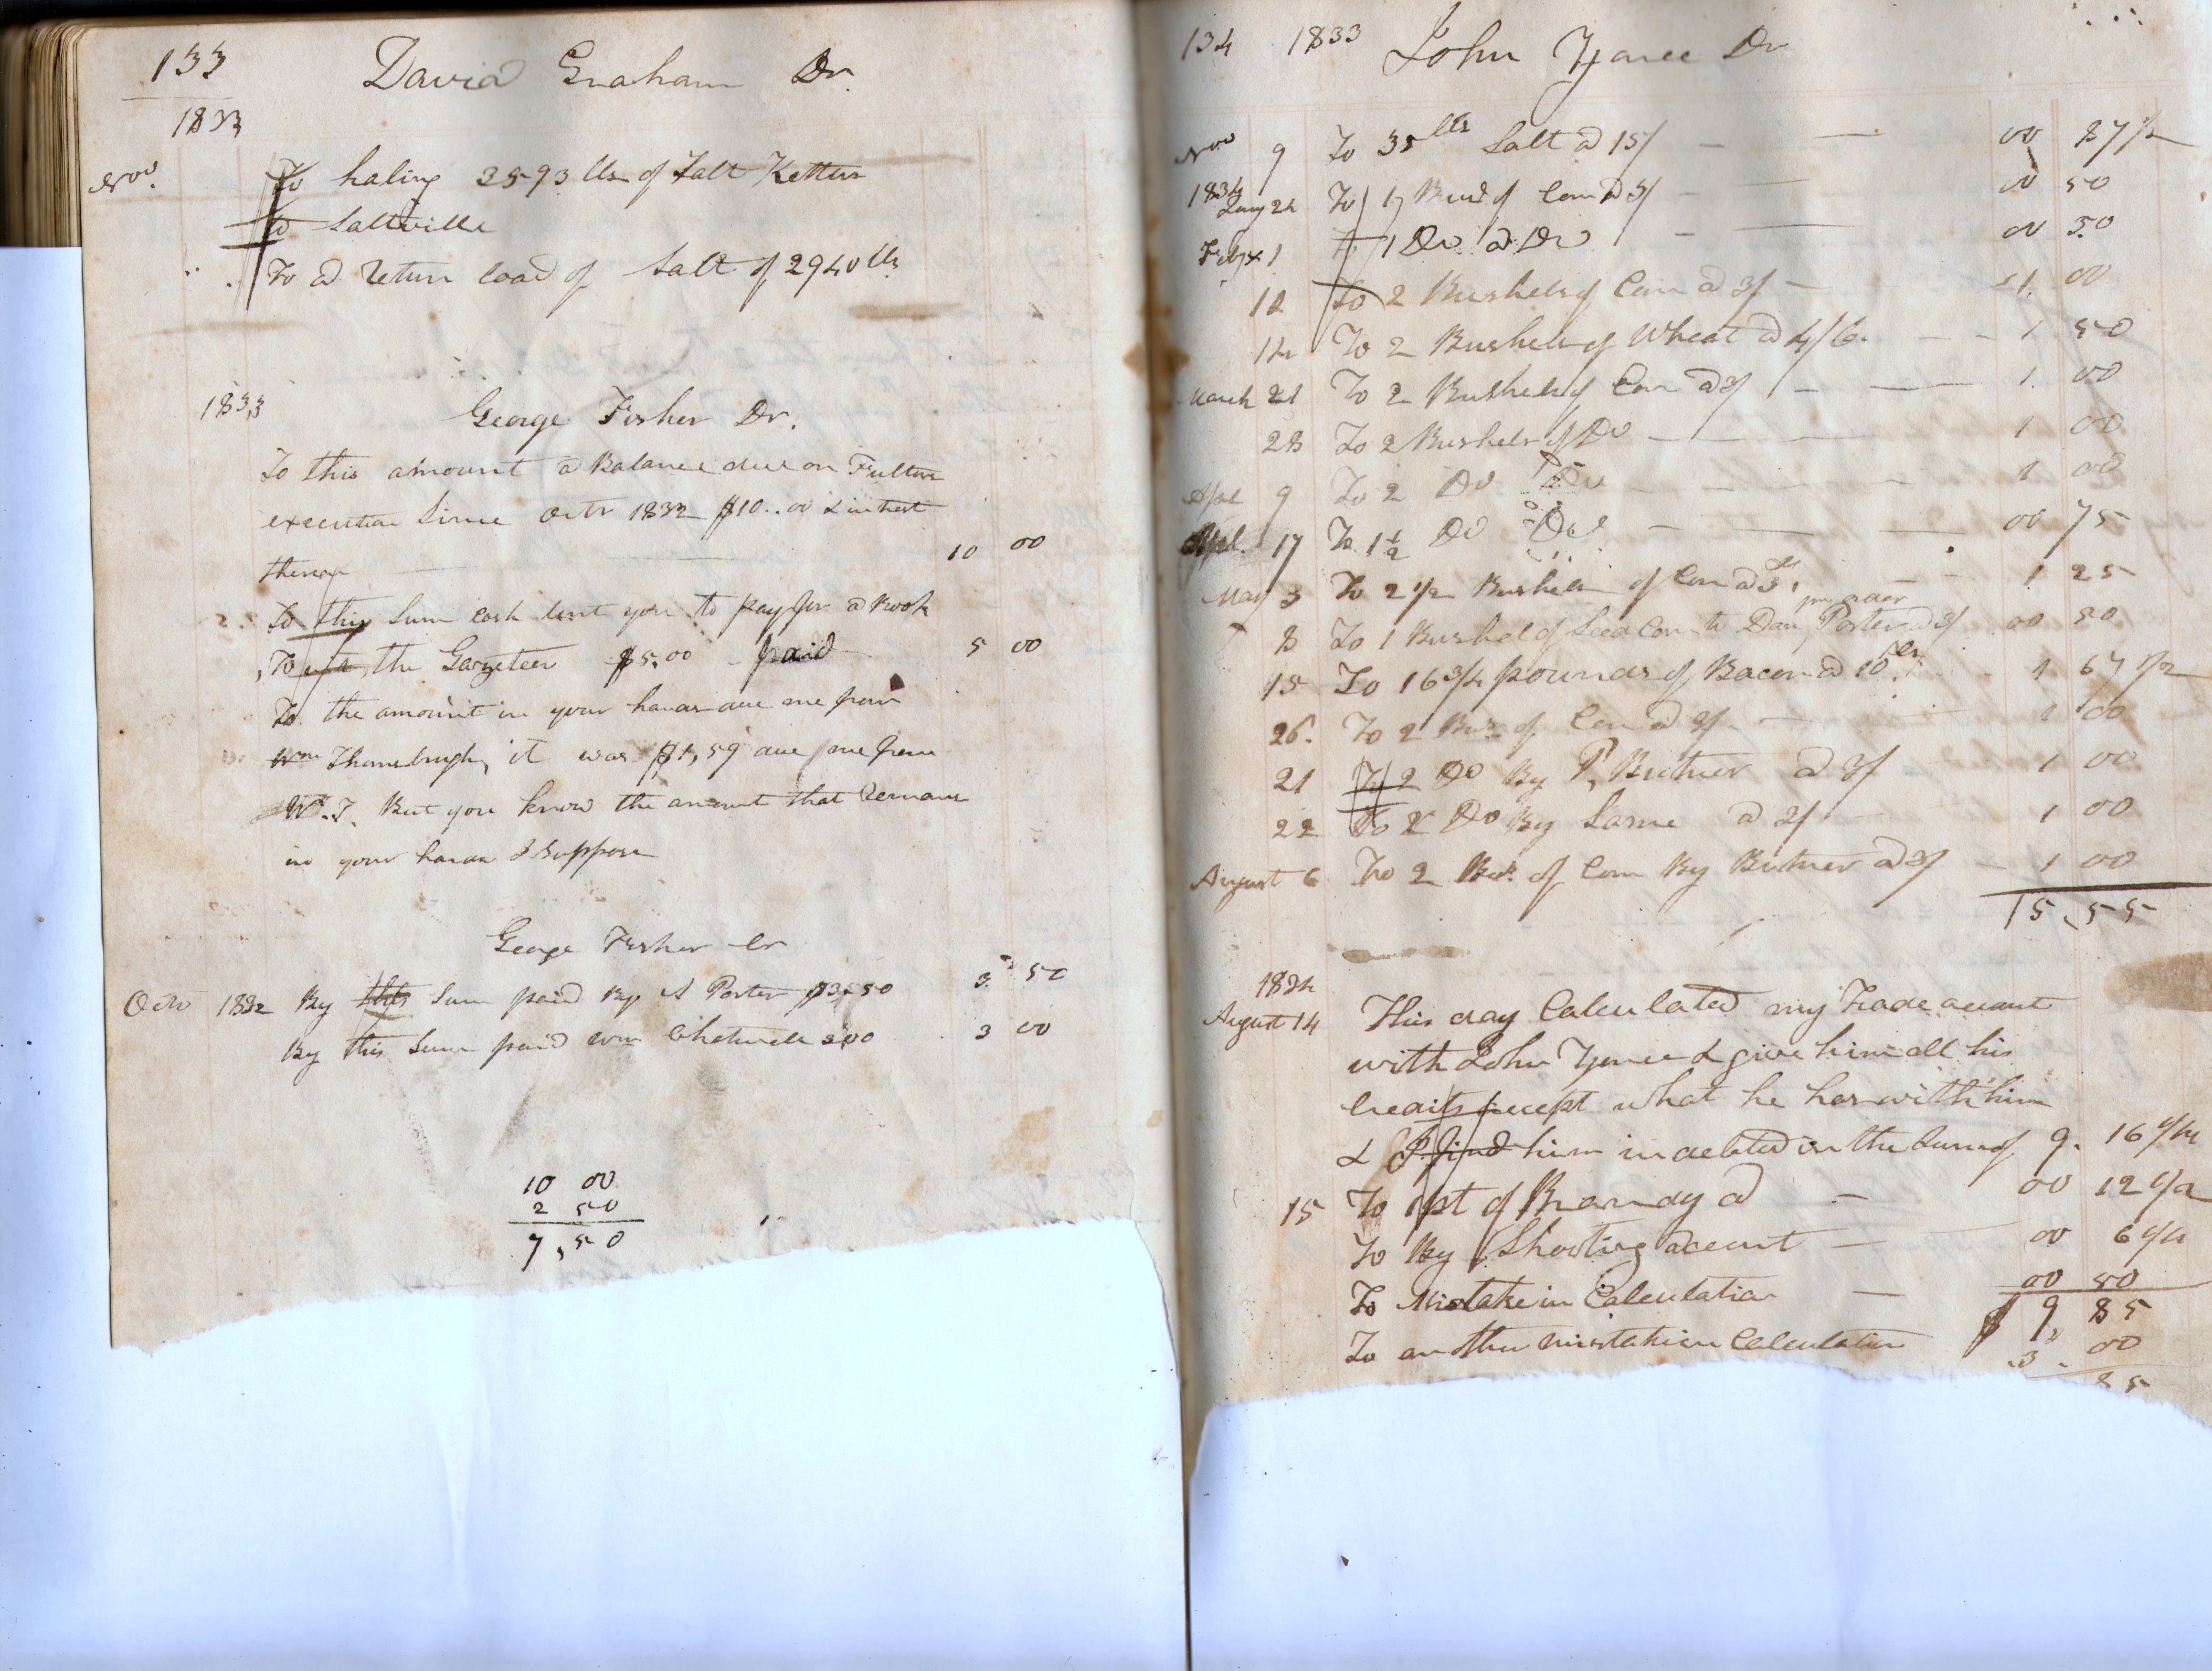 133
David Graham Dr.
1833
Novr. To haling 3593 lbs of Salt Kettles
to Saltville
To a return load of Salt of 2940 lbs
1833
George Fisher Dr.
To this amount a Balance due on Fulton
execution Since Octr 1832 $10..00 & intrest
thereon 10 00
To this Sum cash lent you to pay for a Book
To wit, the Gazeteer $5.00 paid 5 00
To the amount in your hands due me from
Wm Thornebrugh, it was $1,59 due me from
W.T. But you know the amount that remans
in your hands I suppose
George Fisher Cr
Octr 1832 By this Sum paid By A Porter $3.50 3. 50
By this Sum paid Wm 300 3 00
10 00
2 50
7,50
134 1833 John Yonce Dr
Novr 9 To 35 lbs Salt a 15/ 00 87 1/2
1834
Jany 24 To 1 Bus of Corn a 3/ 00 50
Feby 1 To 1 Do a Do 00 50
12 To 2 Bushels of Corn a 3/ 1. 00
14 To 2 Bushels of Wheat a 4/6. 1 50
March 21 To 2 Bushels of Corn a 3/ 1. 00
28 To 2 Bushels of Do 1 00
Aprl 9 To 2 Do Do 1 00
Aprl. 17 To 1 1/2 Do Do 00 75
May 3 To 2 1/2 Bushels of Corn a 3/ 1 25
pr order
8 To 1 Bushel of Seed Corn to Dan Porter a 3/ 00 50
15 To 16 3/4 pounds of Bacon a 10 cts 1 67 1/2
26. To 2 Bus of Corn a 3/ 1 00
21 To 2 Do By P. Butner a 3/ 1 00
22 To 2 Do By Same a 3/ 1 00
August 6 To 2 Bus. of Corn By Butner a 3/ 1 00
15,55
1834
August 14 This day Calculated my Trade acount
with John Yonce & give him all his
Credits except what he has with him
& I find him indebted in the Sum of 9. 16 1/4
15 To 1 pt of Brandy a 00 12 1/2
To By Shooting acount 00 6 1/4
To Mistake in Calculation 00 50
$9, 85
To another mistake in Calculation 3. 00
85